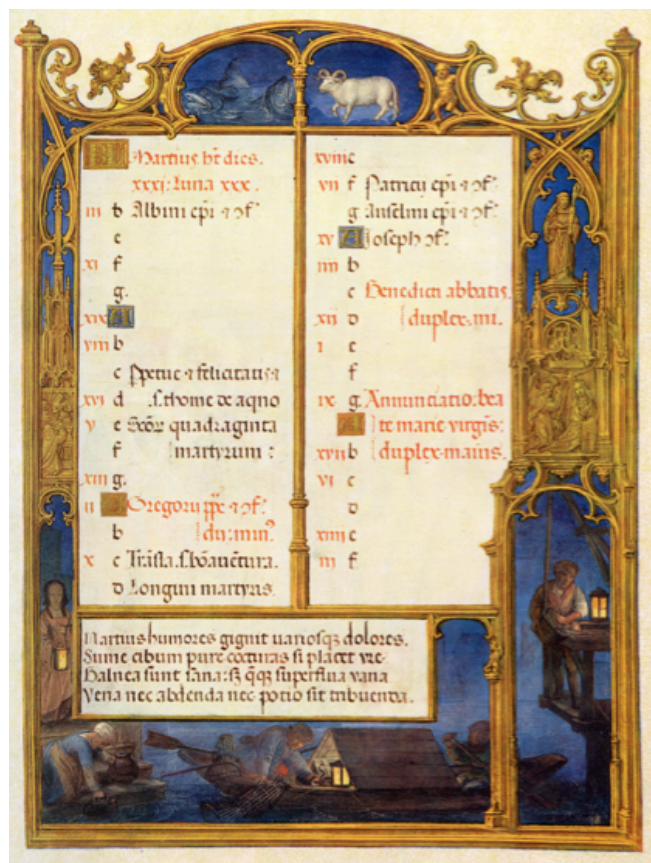 Martius ht dies.
xxxi: luna xxx.
iii b Albini epi ⁊ ꝯf
c
xi f
g.
xix A
viii b
c Ppetue ⁊ felicitatis
xvi d s. thome de aqno
v e Scõꝝ quadraginta
f martyrum:
xiii g.
ii Gregorii ppe ⁊ ꝯf.
b du: min⁹
x c Trãsla. s. bõauẽtura.
d Longini martyris.
xviii e
vii f Patricii epi ⁊ ꝯf.
g Anselmi epi ⁊ ꝯf.
xv A Ioseph ꝯf.
iiii b
c Benedicti abbatis.
xii d duplex. mi.
i e
f
ix g Annunciatio: bea
A te marie virgis:
xvii b duplex maius.
vi c
d
xiiii e
iii f
Martius humores gignit uariosqȝ dolores.
Sume cibum pure cocturas si placet vre
Balnea sunt sana: sȝ qȝ superflua vana
Vena nec abdenda nec potio sit tribuenda.